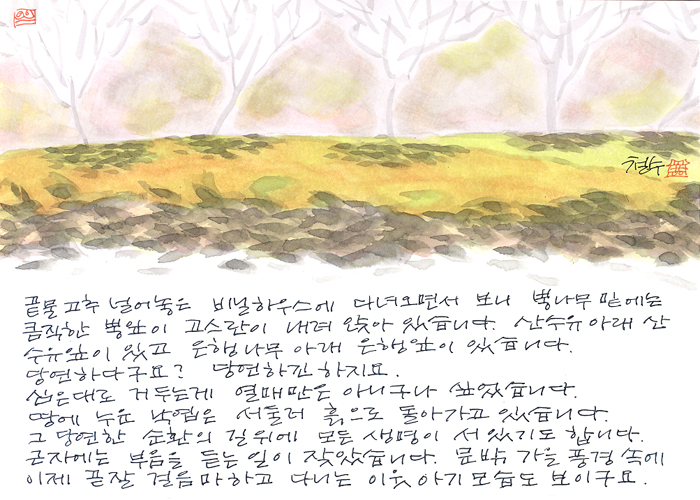 철수
끝물고추 널어놓은 비닐하우스에 다녀오면서 보니 뽕나무 밑에는
큼직한 뽕잎이 고스란이 내려 앉아 있습니다. 산수유 아래 산
수유잎이 있고 은행나무 아래 은행잎이 있습니다.
당연하다구요? 당연하긴 하지요.
심은대로 거두는게 열매만은 아니구나 싶었습니다.
땅에 누운 낙엽은 서둘러 흙으로 돌아가고 있습니다.
그 당연한 순환의 길위에 모든 생명이 서 있기도 합니다.
근자에는 부음을 듣는 일이 잦았습니다. 문밖 가을 풍경 속에
이제 끝잘 걸음마하고 다니는 이웃 아기 모습도 보이구요.